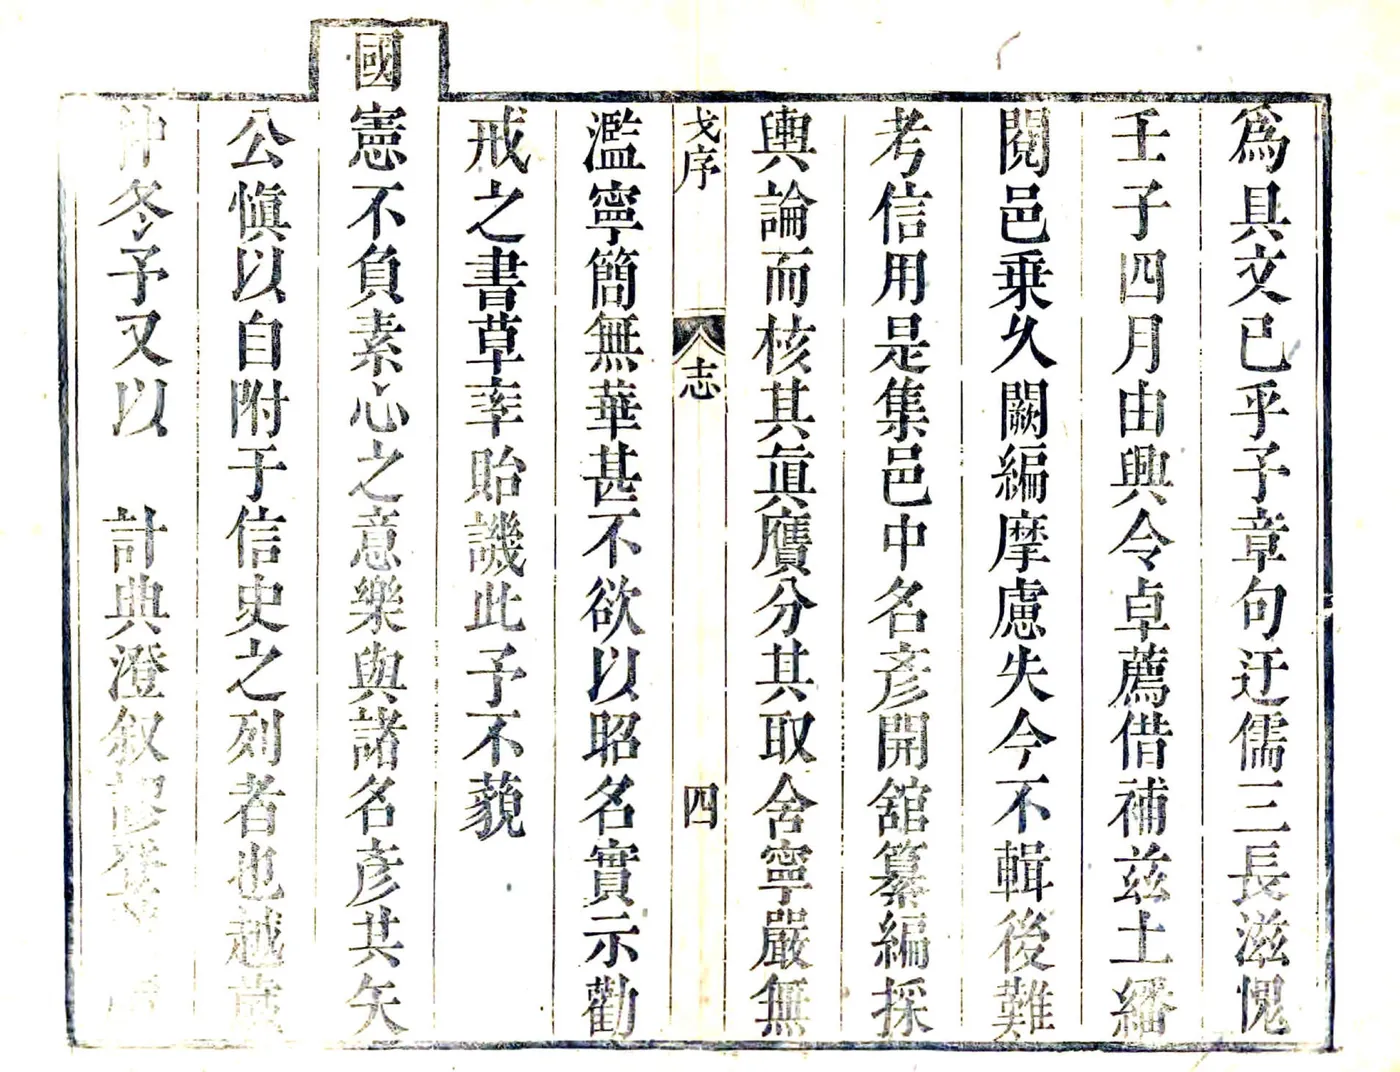 爲具文已乎予章句迂儒三長滋愧
壬子四月由興令卓薦借補茲土繙
閱邑乗久闕編摩慮失今不輯後難
考信用是集邑中名彥開舘纂編採
輿論而核其眞贋分其取舍寧嚴無
戈序 志 四
濫寧簡無華甚不欲以昭名實示勸
戒之書草率貽譏此予不藐
國憲不負素心之意樂與諸名彥共矢
公愼以自附于信史之列者也越歲
仲冬予又以 計典澄叙謬登